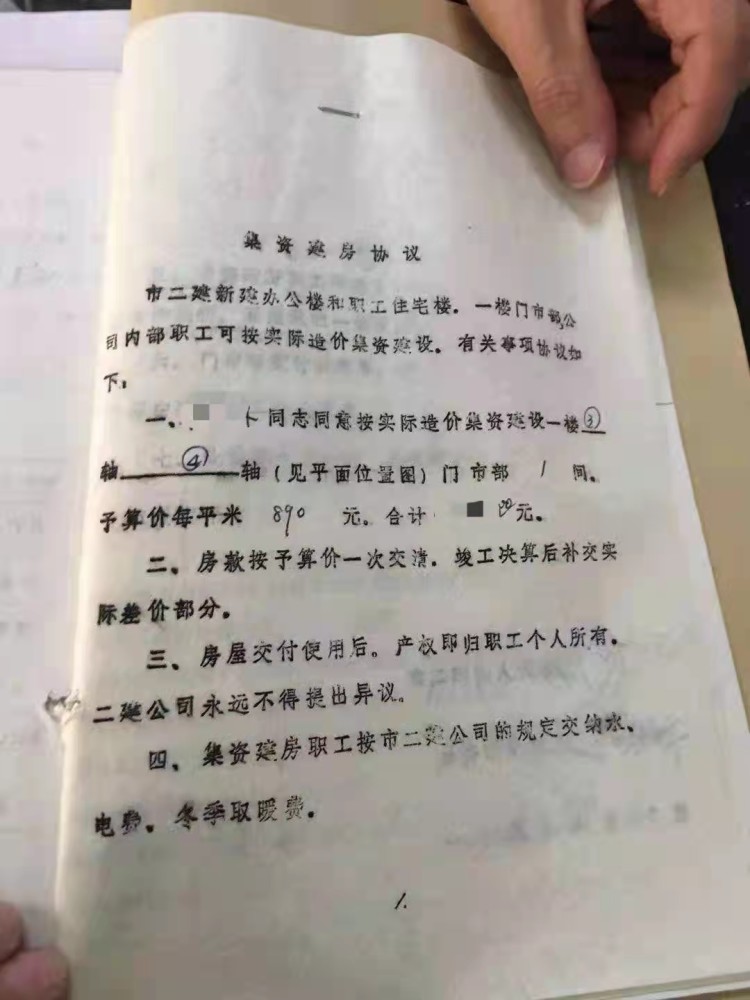 集资建房协议
市二建新建办公楼和职工住宅楼．一楼门市部公
司内部职工可按实际造价集资建设。有关事项协议如
下：
一、同志同意按实际造价集资建设一楼③
轴④轴（见平面位置图）门市部 1 间。
予算价每平米 890 元。合计 元。
二、房款按予算价一次交清．竣工决算后补交实
际差价部分。
三、房屋交付使用后。产权即归职工个人所有。
二建公司永远不得提出异议。
四、集资建房职工按市二建公司的规定交纳水、
电费。冬季取暖费。
1.